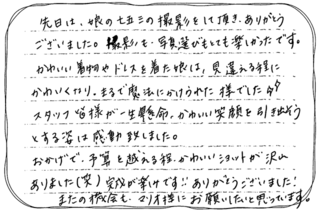 先日は、娘の七五三の撮影をして頂き、ありがとう
ございました。撮影も、写真選びもとても楽しかったです。
かわいい着物やドレスを着た娘は、見違える程に
かわいくなり、まるで魔法にかけられた様でした
スタッフ皆様が一生懸命、かわいい笑顔を引き出そう
とする姿は感動致しました。
おかげで、予算を越える程、かわいいショットが沢山
ありました(笑) 完成が楽しみです!! ありがとうございました!
またの機会も、マリオ様にお願いしたいと思っています。